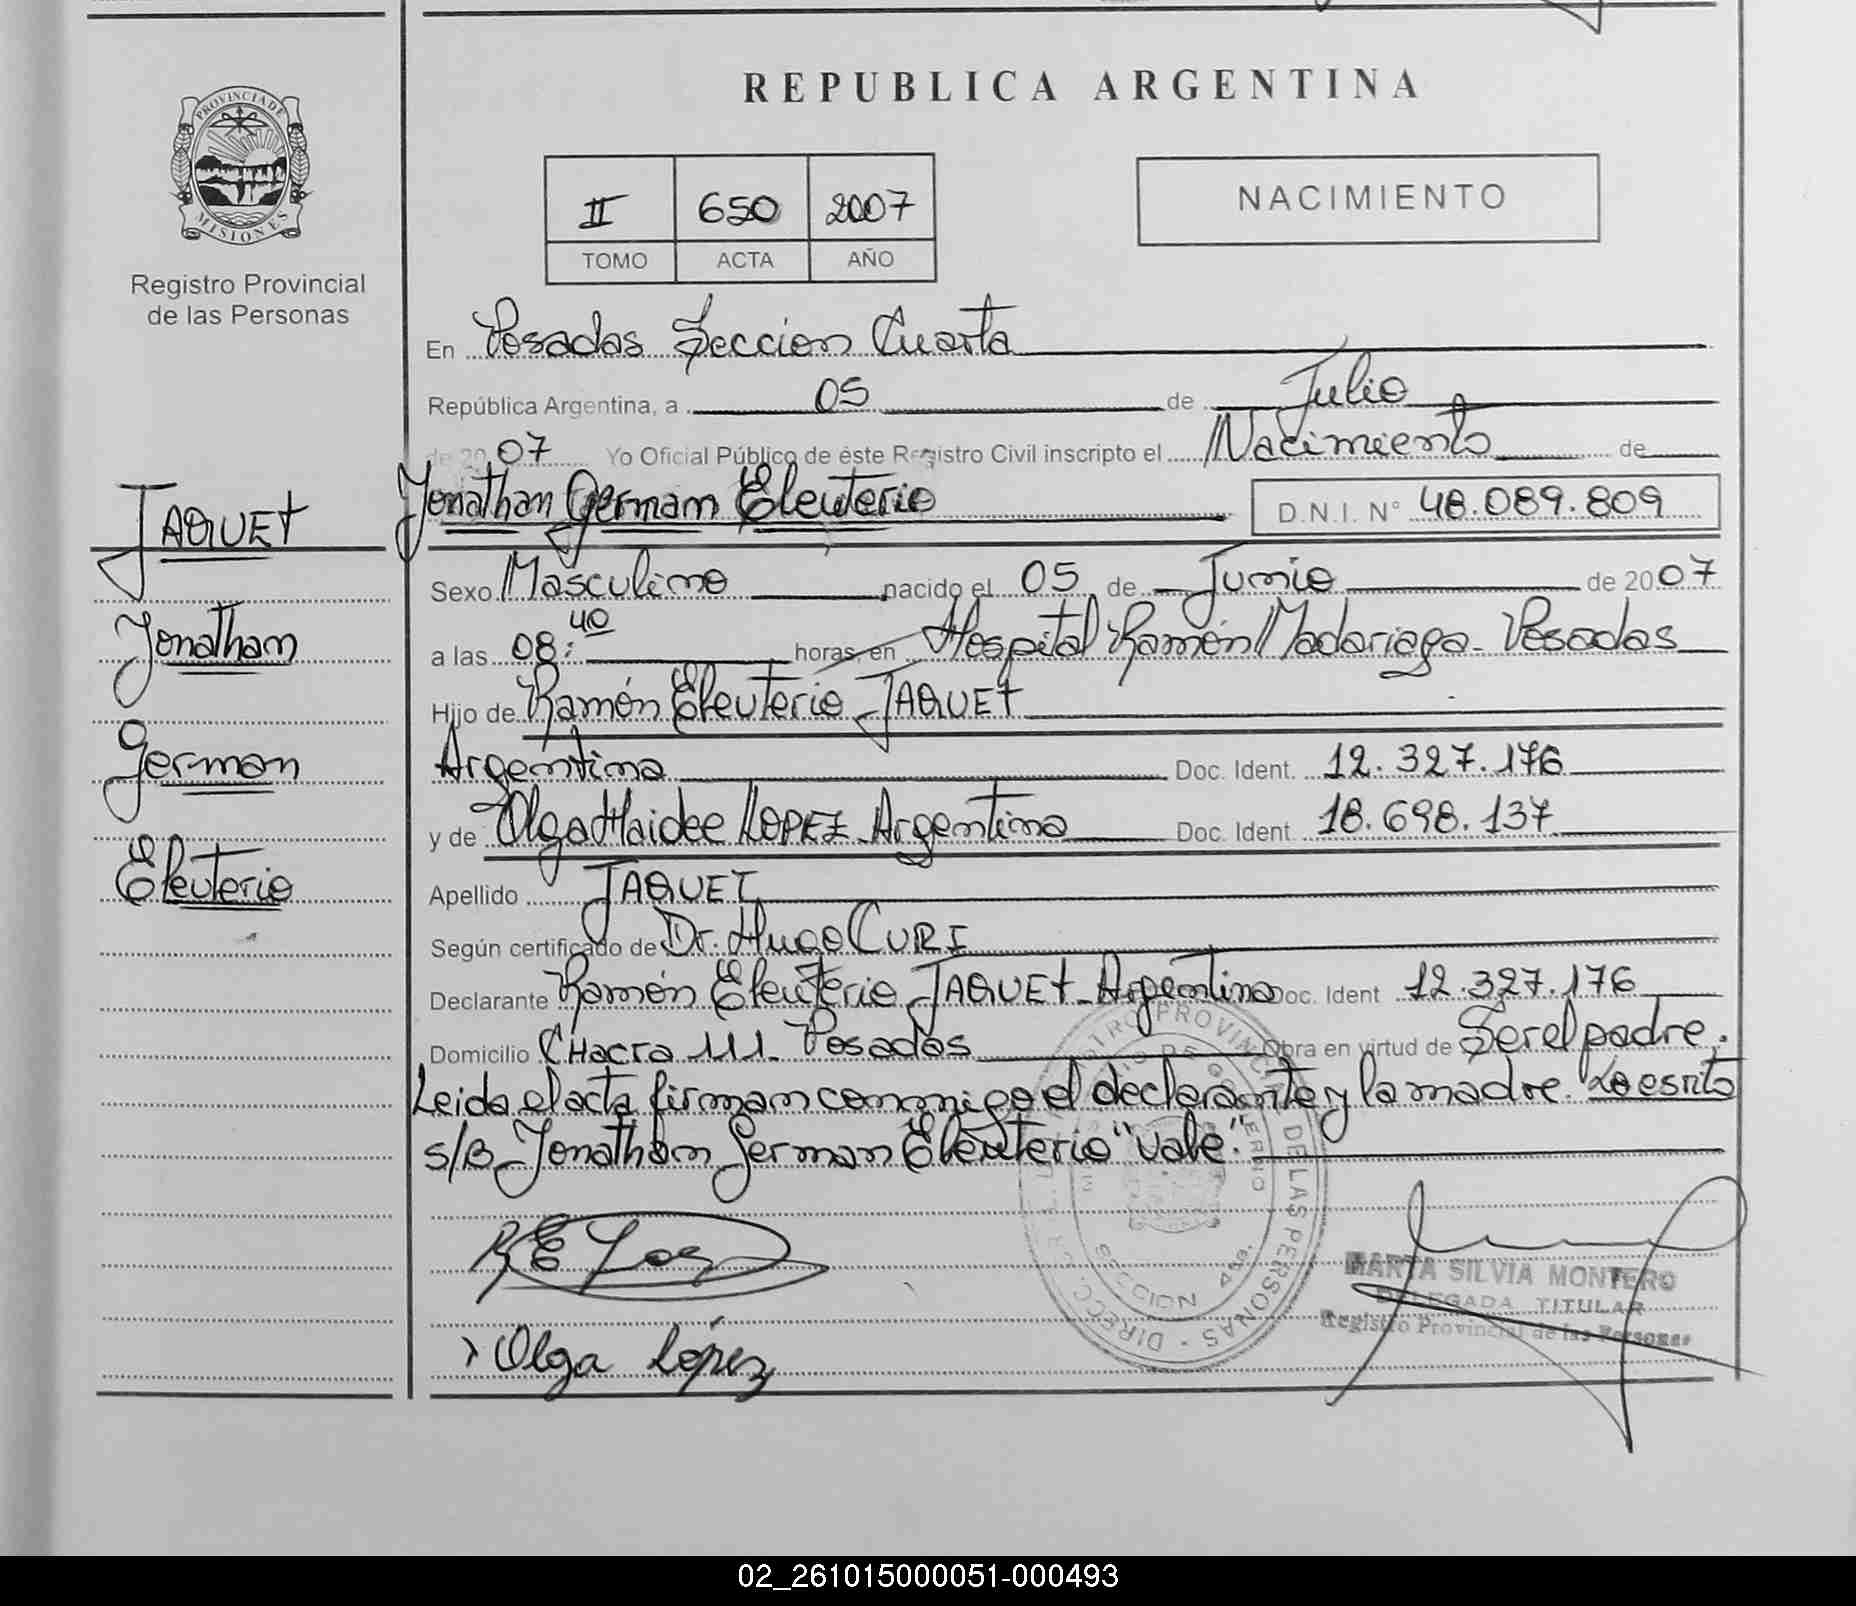 REPUBLICA ARGENTINA
PROVINCIA DE
MISIONES
Registro Provincial
de las Personas
II 650 2007
TOMO ACTA AÑO
NACIMIENTO
En Posadas Seccion Cuarta
República Argentina, a 05 de Julio
de 2007 Yo Oficial Público de éste Registro Civil inscripto el Nacimiento de
Jonathan German Eleuterio D.N.I. N° 48.089.809
JAQUET
Jonathan
German
Eleuterio
Sexo Masculino nacido el 05 de Junio de 2007
a las 08:40 horas, en Hospital Ramón Madariaga - Posadas
Hijo de Ramón Eleuterio JAQUET
Argentina Doc. Ident. 12.327.176
y de Olga Haidee LOPEZ - Argentina Doc. Ident 18.698.137
Apellido JAQUET
Según certificado de Dr. Hugo CURI
Declarante Ramón Eleuterio JAQUET - Argentina Doc. Ident 12.327.176
Domicilio CHacra 111 - Posadas Obra en virtud de Ser el padre.
Leida el acta firman conmigo el declarante y la madre. Lo esrito
s/B Jonathan German Eleuterio "vale".
Olga López
MARTA SILVIA MONTERO
DELEGADA TITULAR
Registro Provincial de las Personas
SECCION 4ta.
02_261015000051-000493